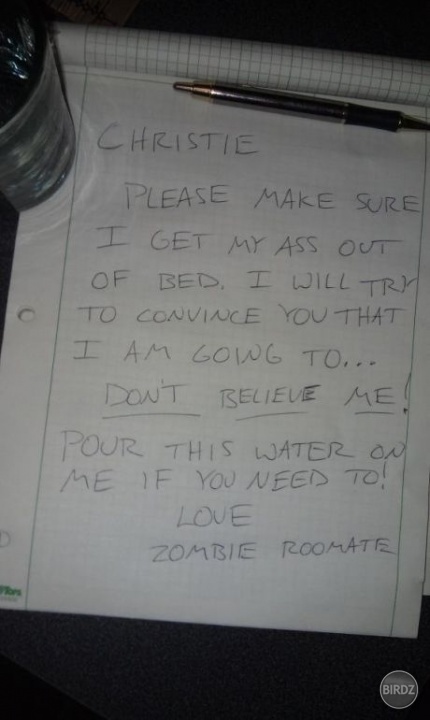 CHRISTIE
PLEASE MAKE SURE
I GET MY ASS OUT
OF BED. I WILL TRY
TO CONVINCE YOU THAT
I AM GOING TO...
DON'T BELIEVE ME!
POUR THIS WATER ON
ME IF YOU NEED TO!
LOVE
ZOMBIE ROOMATE
BIRDZ